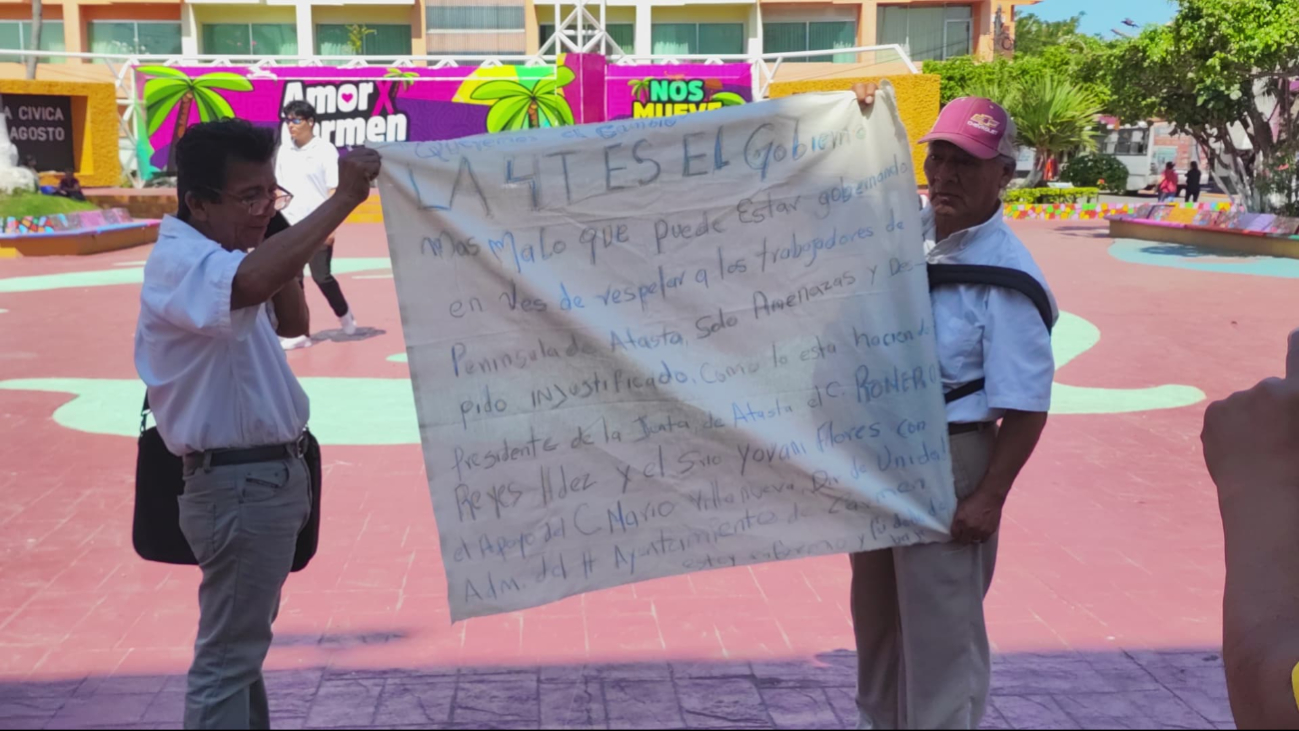 A CIVICA
AGOSTO
Amor X
Carmen
NOS
MUEVE
CHEVROLET
Queremos un Cambio
LA 4T ES El Gobierno
Mas Malo que puede Estar gobernando
en Ves de respetar a los trabajadores de
Peninsula de Atasta. Solo Amenazas y Des-
pido injustificado. Como lo esta haciendo
Presidente de la Junta de Atasta el C. ROMERO
Reyes Hdez y el Srio Yovani Flores con
el Apoyo del C Mario Villanueva. Dir de Unidad
Adm. del H Ayuntamiento de Carmen